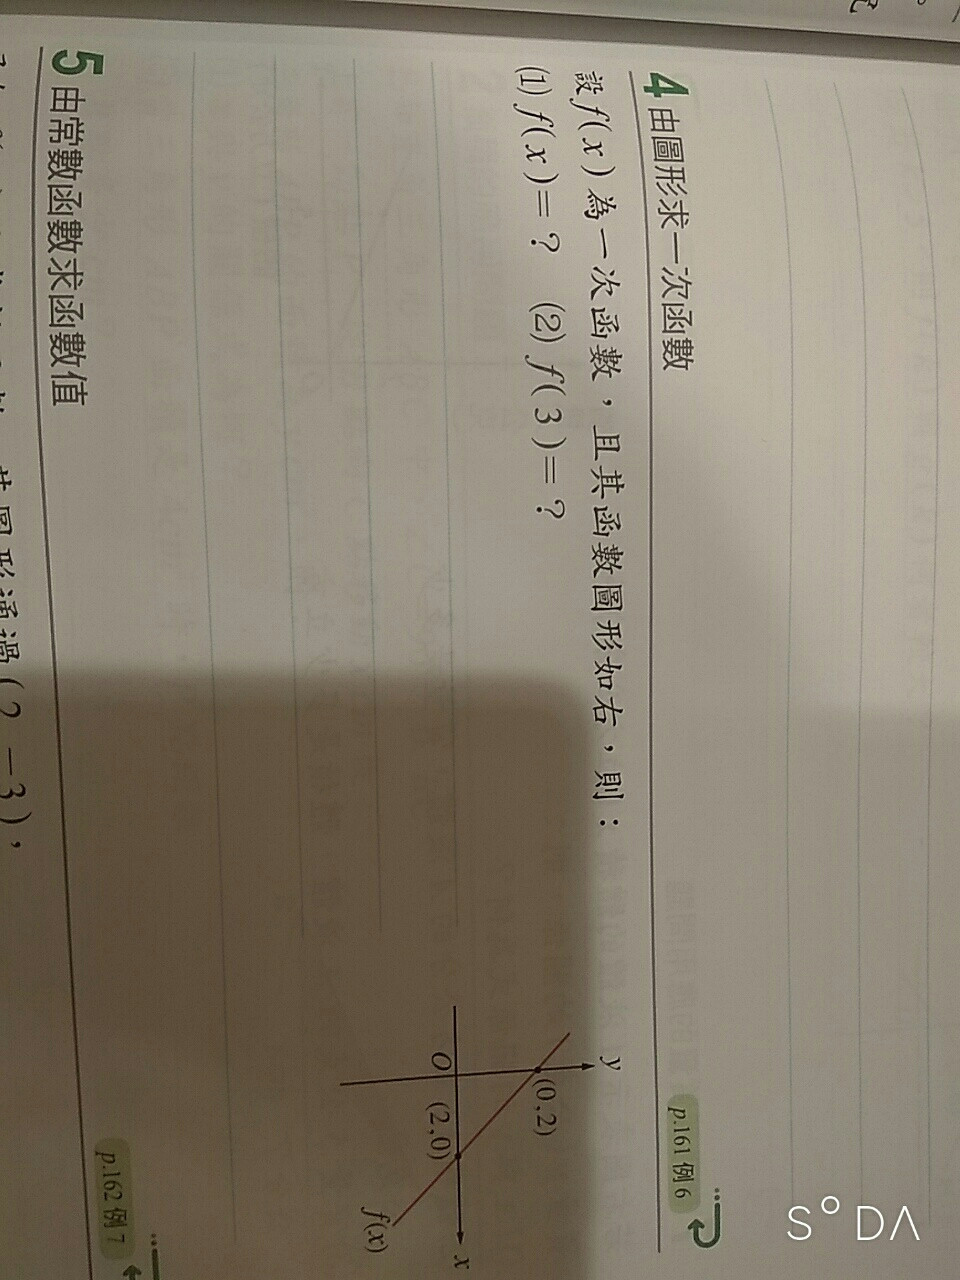 4 由圖形求一次函數
p.161 例 6
設 f(x) 為一次函數，且其函數圖形如右，則：
(1) f(x)=？ (2) f(3)=？
y
(0,2)
O
(2,0)
x
f(x)
5 由常數函數求函數值
p.162 例 7
其圖形通過(2,-3),
S°DΛ